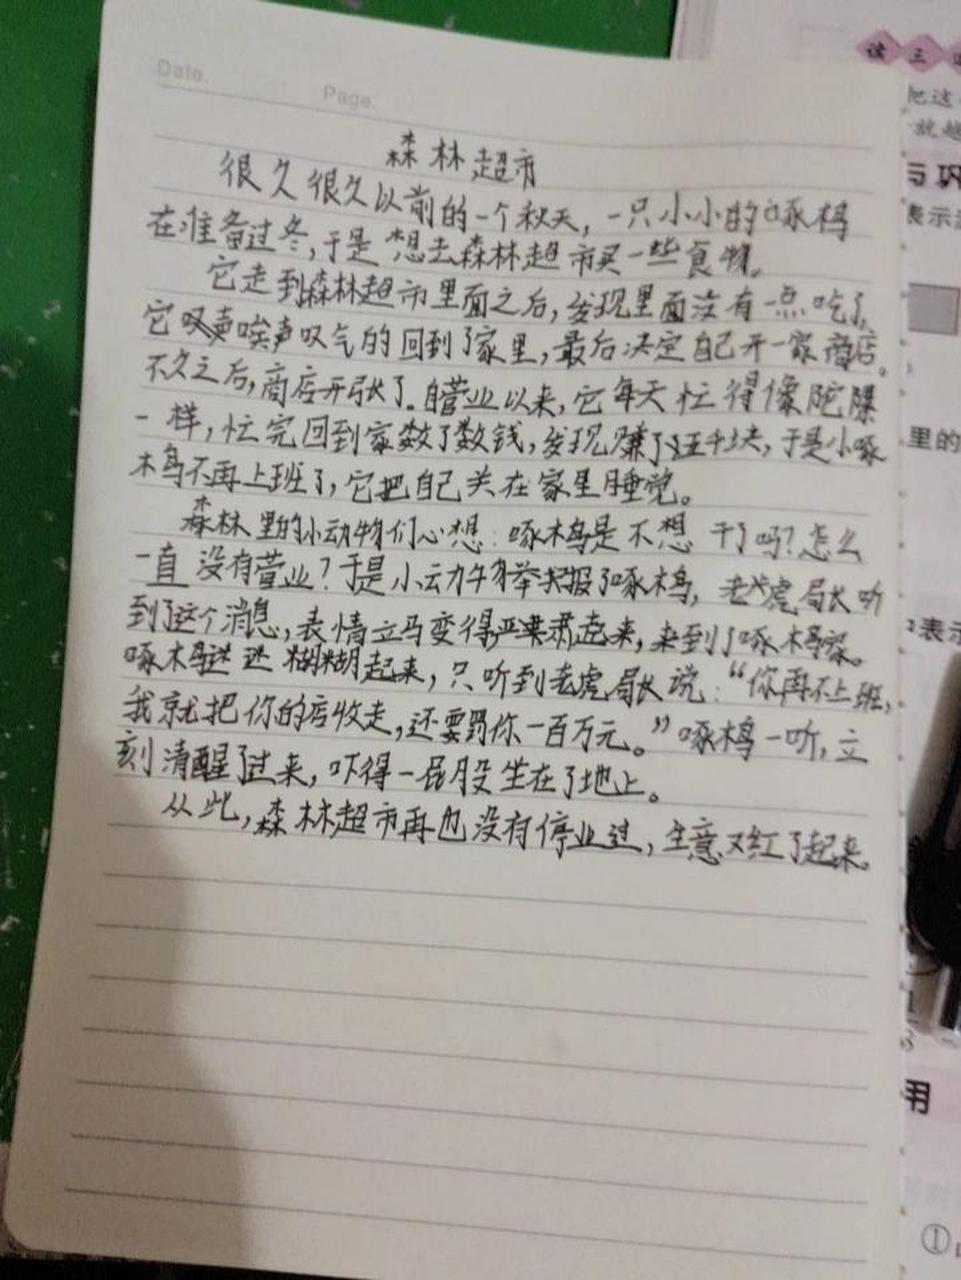 Date.
Page.
森林超市
很久很久以前的一个秋天，一只小小的啄木鸟
在准备过冬，于是想去森林超市买一些食物。
它走到森林超市里面之后，发现里面没有一点吃了，
它唉声叹气的回到了家里，最后决定自己开一家商店。
不久之后，商店开张了。自营业以来，它每天忙得像陀螺
一样，忙完回到家数了数钱，发现赚了五千块，于是小啄
木鸟不再上班了，它把自己关在家里睡觉。
森林里的小动物们心想：啄木鸟是不想干了吗？怎么
一直没有营业？于是小动物举报了啄木鸟，老虎局长听
到了这个消息，表情立马变得严肃起来，来到了啄木鸟家。
啄木鸟迷迷糊糊起来，只听到老虎局长说：“你再不上班，
我就把你的店收走，还要罚你一百万元。”啄木鸟一听，立
刻清醒了过来，吓得一屁股坐在了地上。
从此，森林超市再也没有停业过，生意又红了起来。
读三
把这
就越
与巩
表示
里的
表示
用
①